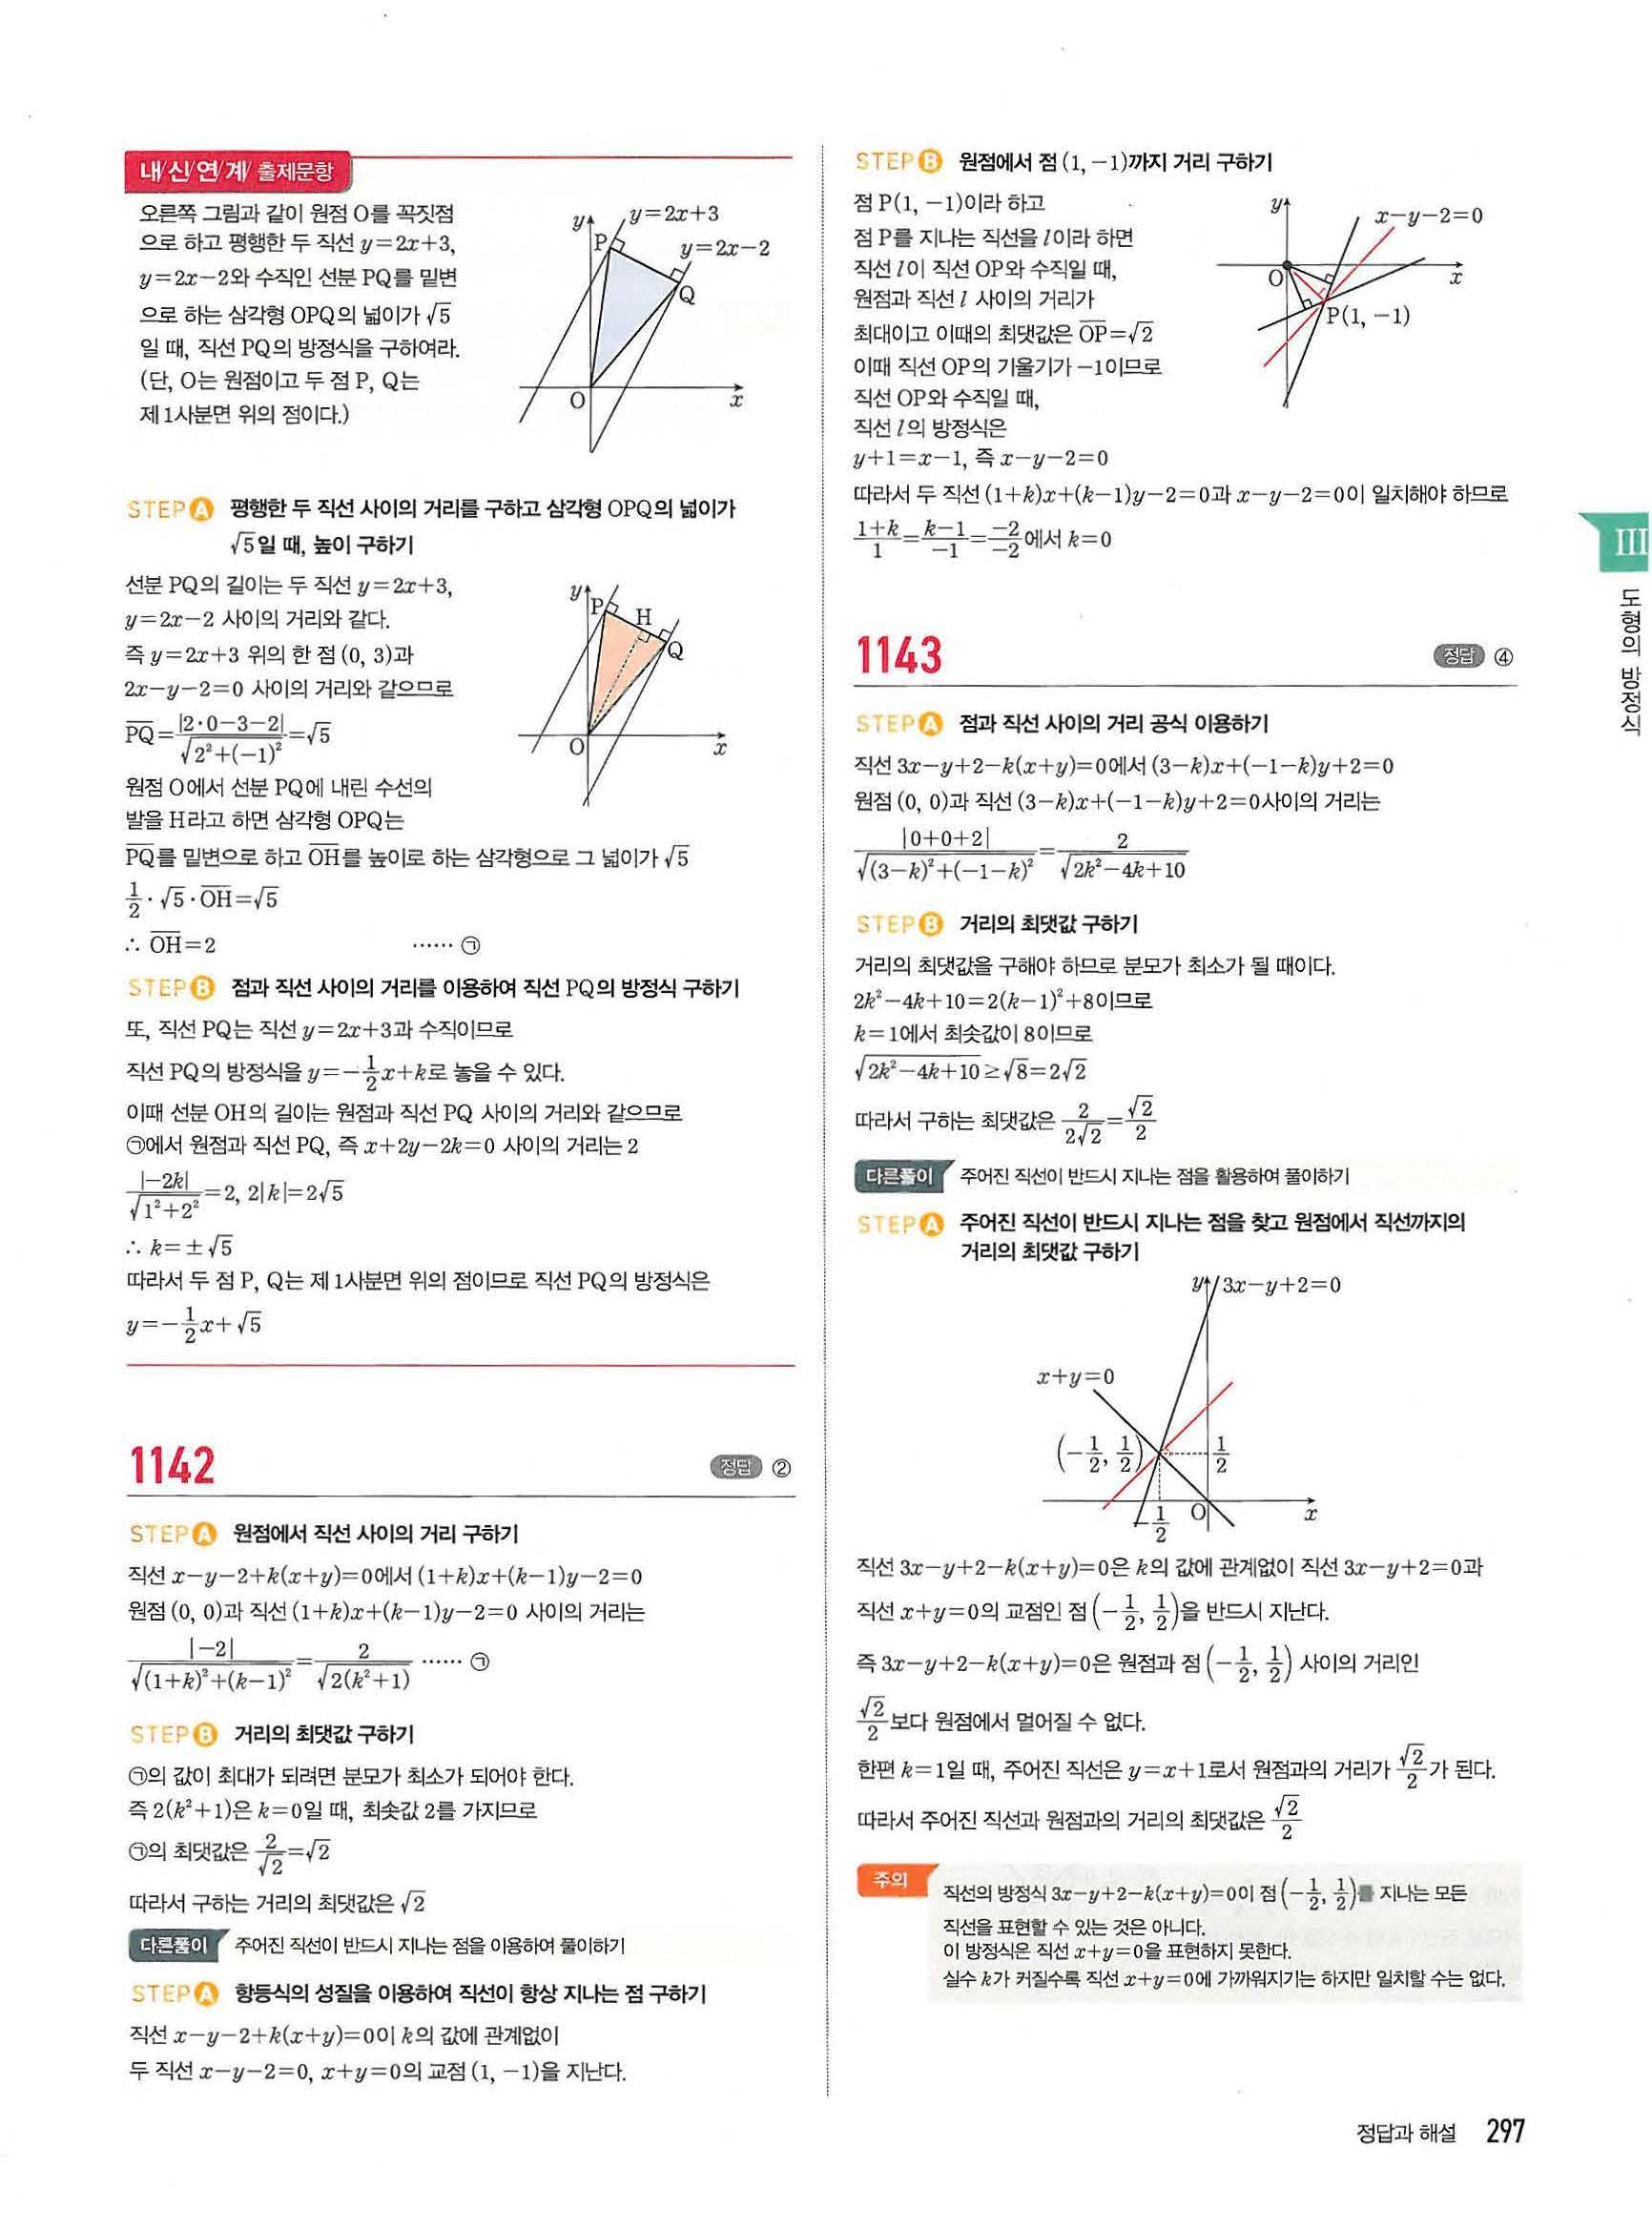 내/신/연/계/ 출제문항
오른쪽 그림과 같이 원점 O를 꼭짓점
으로 하고 평행한 두 직선 y=2x+3,
y=2x-2와 수직인 선분 PQ를 밑변
으로 하는 삼각형 OPQ의 넓이가 √5
일 때, 직선 PQ의 방정식을 구하여라.
(단, O는 원점이고 두 점 P, Q는
제 1사분면 위의 점이다.)
y
y=2x+3
P
y=2x-2
Q
O
x
STEP A 평행한 두 직선 사이의 거리를 구하고 삼각형 OPQ의 넓이가
√5일 때, 높이 구하기
선분 PQ의 길이는 두 직선 y=2x+3,
y=2x-2 사이의 거리와 같다.
즉 y=2x+3 위의 한 점 (0, 3)과
2x-y-2=0 사이의 거리와 같으므로
PQ=|2·0-3-2|/√(2²+(-1)²)=√5
원점 O에서 선분 PQ에 내린 수선의
발을 H라고 하면 삼각형 OPQ는
PQ를 밑변으로 하고 OH를 높이로 하는 삼각형으로 그 넓이가 √5
1/2·√5·OH=√5
∴ OH=2 …… ㉠
y
P
H
Q
O
x
STEP B 점과 직선 사이의 거리를 이용하여 직선 PQ의 방정식 구하기
또, 직선 PQ는 직선 y=2x+3과 수직이므로
직선 PQ의 방정식을 y=-1/2x+k로 놓을 수 있다.
이때 선분 OH의 길이는 원점과 직선 PQ 사이의 거리와 같으므로
㉠에서 원점과 직선 PQ, 즉 x+2y-2k=0 사이의 거리는 2
|-2k|/√(1²+2²)=2, 2|k|=2√5
∴ k=±√5
따라서 두 점 P, Q는 제 1사분면 위의 점이므로 직선 PQ의 방정식은
y=-1/2x+√5
1142
정답 ②
STEP A 원점에서 직선 사이의 거리 구하기
직선 x-y-2+k(x+y)=0에서 (1+k)x+(k-1)y-2=0
원점 (0, 0)과 직선 (1+k)x+(k-1)y-2=0 사이의 거리는
|-2|/√((1+k)²+(k-1)²)=2/√(2(k²+1)) …… ㉠
STEP B 거리의 최댓값 구하기
㉠의 값이 최대가 되려면 분모가 최소가 되어야 한다.
즉 2(k²+1)은 k=0일 때, 최솟값 2를 가지므로
㉠의 최댓값은 2/√2=√2
따라서 구하는 거리의 최댓값은 √2
다른풀이 주어진 직선이 반드시 지나는 점을 이용하여 풀이하기
STEP A 항등식의 성질을 이용하여 직선이 항상 지나는 점 구하기
직선 x-y-2+k(x+y)=0이 k의 값에 관계없이
두 직선 x-y-2=0, x+y=0의 교점 (1, -1)을 지난다.
STEP B 원점에서 점 (1, -1)까지 거리 구하기
점 P(1, -1)이라 하고
점 P를 지나는 직선을 l이라 하면
직선 l이 직선 OP와 수직일 때,
원점과 직선 l 사이의 거리가
최대이고 이때의 최댓값은 OP=√2
이때 직선 OP의 기울기가 -1이므로
직선 OP와 수직일 때,
직선 l의 방정식은
y+1=x-1, 즉 x-y-2=0
y
x-y-2=0
O
x
P(1, -1)
따라서 두 직선 (1+k)x+(k-1)y-2=0과 x-y-2=0이 일치해야 하므로
(1+k)/1=(k-1)/-1=-2/-2에서 k=0
1143
정답 ④
STEP A 점과 직선 사이의 거리 공식 이용하기
직선 3x-y+2-k(x+y)=0에서 (3-k)x+(-1-k)y+2=0
원점 (0, 0)과 직선 (3-k)x+(-1-k)y+2=0사이의 거리는
|0+0+2|/√((3-k)²+(-1-k)²)=2/√(2k²-4k+10)
STEP B 거리의 최댓값 구하기
거리의 최댓값을 구해야 하므로 분모가 최소가 될 때이다.
2k²-4k+10=2(k-1)²+8이므로
k=1에서 최솟값이 8이므로
√(2k²-4k+10)≥√8=2√2
따라서 구하는 최댓값은 2/2√2=√2/2
다른풀이 주어진 직선이 반드시 지나는 점을 활용하여 풀이하기
STEP A 주어진 직선이 반드시 지나는 점을 찾고 원점에서 직선까지의
거리의 최댓값 구하기
y
3x-y+2=0
x+y=0
(-1/2, 1/2)
1/2
-1/2
O
x
직선 3x-y+2-k(x+y)=0은 k의 값에 관계없이 직선 3x-y+2=0과
직선 x+y=0의 교점인 점 (-1/2, 1/2)을 반드시 지난다.
즉 3x-y+2-k(x+y)=0은 원점과 점 (-1/2, 1/2) 사이의 거리인
√2/2보다 원점에서 멀어질 수 없다.
한편 k=1일 때, 주어진 직선은 y=x+1로서 원점과의 거리가 √2/2가 된다.
따라서 주어진 직선과 원점과의 거리의 최댓값은 √2/2
주의
직선의 방정식 3x-y+2-k(x+y)=0이 점 (-1/2, 1/2) 지나는 모든
직선을 표현할 수 있는 것은 아니다.
이 방정식은 직선 x+y=0을 표현하지 못한다.
실수 k가 커질수록 직선 x+y=0에 가까워지기는 하지만 일치할 수는 없다.
III
도형의 방정식
정답과 해설 297